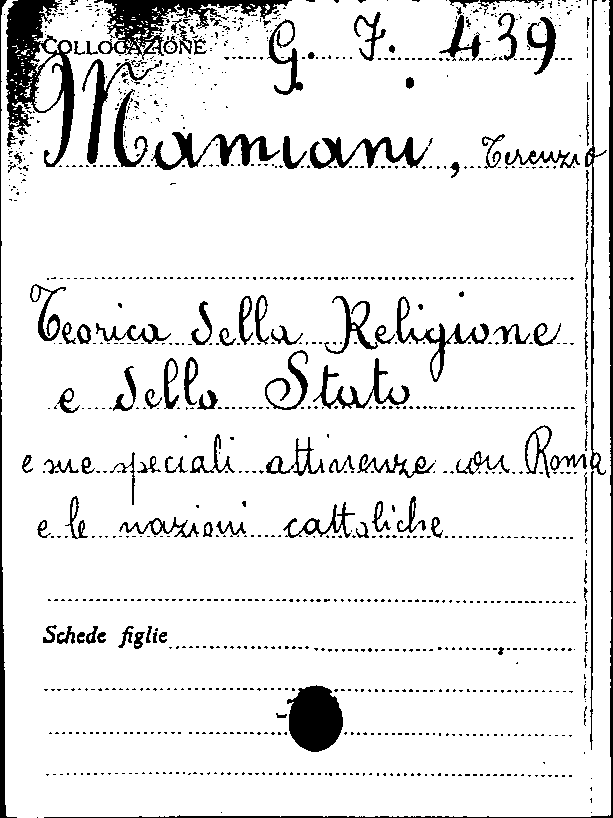 COLLOCAZIONE G. 7. 439
Mamiani, Terenzio
Teorica della Religione
e dello Stato
e sue speciali attinenze con Roma
e le nazioni cattoliche
Schede figlie